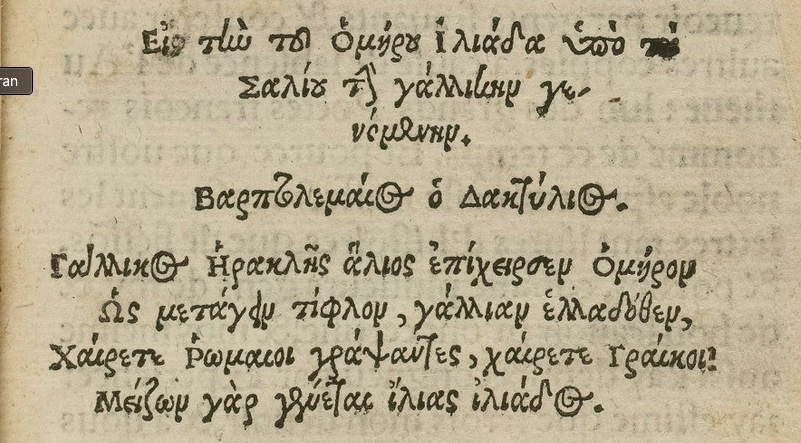 Εἰς τὴν τοῦ Ὁμήρου Ἰλιάδα ὑπὸ
ran
Σαλίου τῇ γάλλικην γε-
νόμενην.
ὁ Δακτύλιος.
Γάλλικος Ἡρακλῆς ἄλιος ἐπίχειρσεν Ὁμήρον
Ὡς μετάγειν τίφλον, γάλλιαν ἑλλαδόθεν,
Χαίρετε Ῥωμαιοι γράψαντες, χαίρετε Γραίκοι:
Μείζων γὰρ ἴλιας ἰλιάδος.